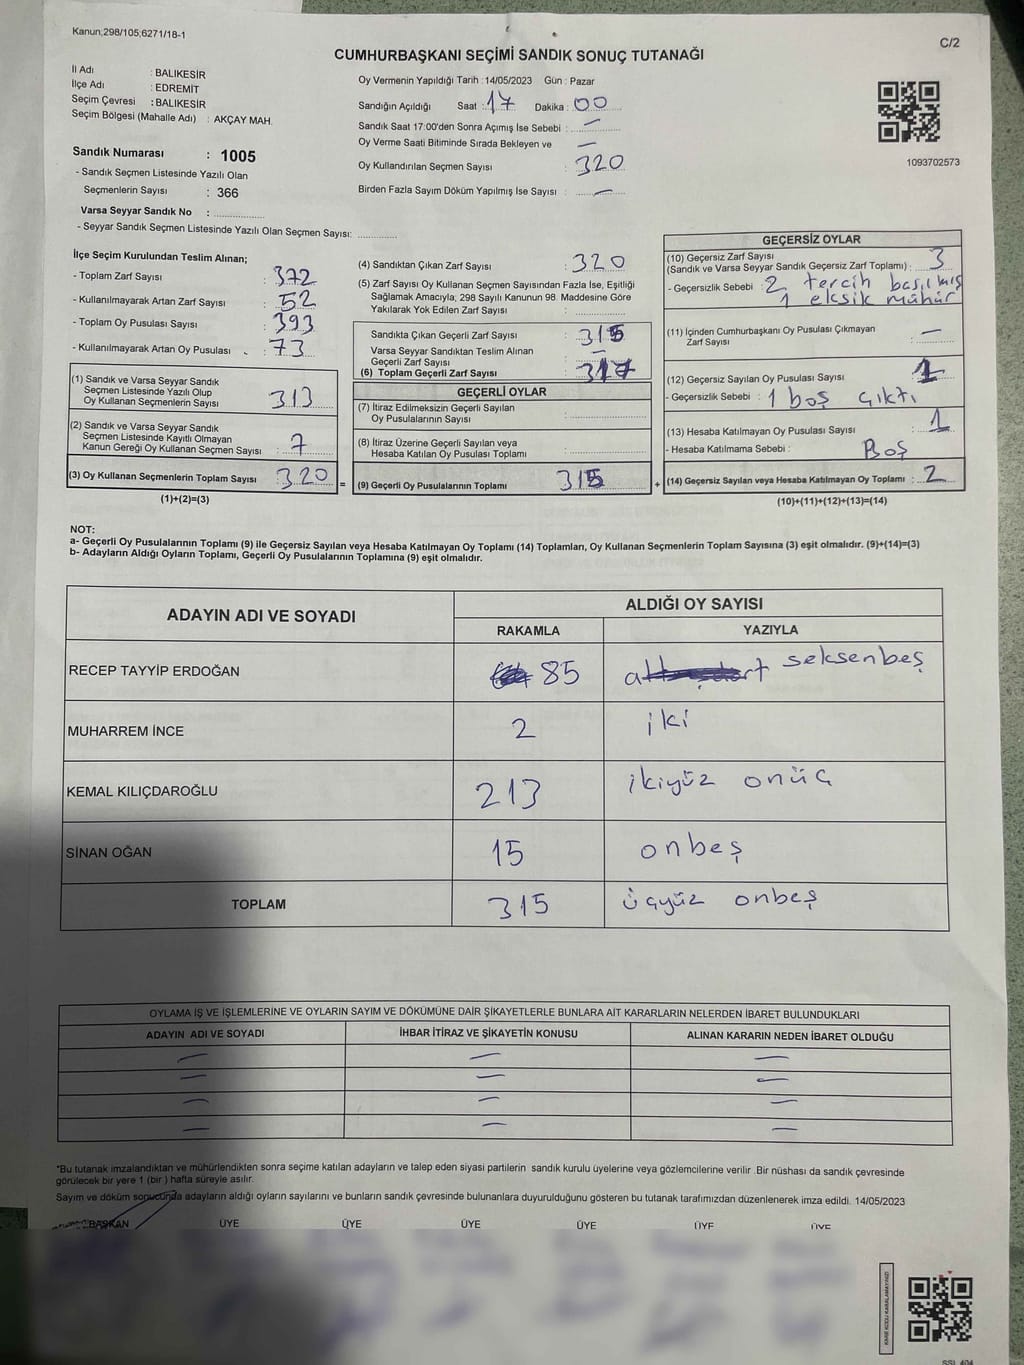 Kanun;298/105;6271/18-1
C/2
CUMHURBAŞKANI SEÇİMİ SANDIK SONUÇ TUTANAĞI
İl Adı : BALIKESİR
İlçe Adı : EDREMİT
Seçim Çevresi : BALIKESİR
Seçim Bölgesi (Mahalle Adı) : AKÇAY MAH.
Sandık Numarası : 1005
- Sandık Seçmen Listesinde Yazılı Olan
Seçmenlerin Sayısı : 366
Varsa Seyyar Sandık No :
- Seyyar Sandık Seçmen Listesinde Yazılı Olan Seçmen Sayısı:
Oy Vermenin Yapıldığı Tarih :14/05/2023 Gün : Pazar
Sandığın Açıldığı Saat : 17 Dakika : 00
Sandık Saat 17:00'den Sonra Açımış İse Sebebi : —
Oy Verme Saati Bitiminde Sırada Bekleyen ve —
Oy Kullandırılan Seçmen Sayısı : 320
Birden Fazla Sayım Döküm Yapılmış İse Sayısı : —
1093702573
İlçe Seçim Kurulundan Teslim Alınan;
- Toplam Zarf Sayısı : 372
- Kullanılmayarak Artan Zarf Sayısı : 52
- Toplam Oy Pusulası Sayısı : 393
- Kullanılmayarak Artan Oy Pusulası : 73
(1) Sandık ve Varsa Seyyar Sandık
Seçmen Listesinde Yazılı Olup
Oy Kullanan Seçmenlerin Sayısı : 313
(2) Sandık ve Varsa Seyyar Sandık
Seçmen Listesinde Kayıtlı Olmayan
Kanun Gereği Oy Kullanan Seçmen Sayısı : 7
(3) Oy Kullanan Seçmenlerin Toplam Sayısı : 320
(1)+(2)=(3)
=
(4) Sandıktan Çıkan Zarf Sayısı : 320
(5) Zarf Sayısı Oy Kullanan Seçmen Sayısından Fazla İse, Eşitliği
Sağlamak Amacıyla, 298 Sayılı Kanunun 98. Maddesine Göre
Yakılarak Yok Edilen Zarf Sayısı :
Sandıkta Çıkan Geçerli Zarf Sayısı : 315
Varsa Seyyar Sandıktan Teslim Alınan
Geçerli Zarf Sayısı : —
(6) Toplam Geçerli Zarf Sayısı : 317
GEÇERLİ OYLAR
(7) İtiraz Edilmeksizin Geçerli Sayılan
Oy Pusulalarının Sayısı :
(8) İtiraz Üzerine Geçerli Sayılan veya
Hesaba Katılan Oy Pusulası Toplamı :
(9) Geçerli Oy Pusulalarının Toplamı : 315
+
GEÇERSİZ OYLAR
(10) Geçersiz Zarf Sayısı
(Sandık ve Varsa Seyyar Sandık Geçersiz Zarf Toplamı) : 3
- Geçersizlik Sebebi : 2 tercih basılmış
1 eksik mühür
(11) İçinden Cumhurbaşkanı Oy Pusulası Çıkmayan
Zarf Sayısı : —
(12) Geçersiz Sayılan Oy Pusulası Sayısı : 1
- Geçersizlik Sebebi : 1 boş çıktı
(13) Hesaba Katılmayan Oy Pusulası Sayısı : 1
- Hesaba Katılmama Sebebi : Boş
(14) Geçersiz Sayılan veya Hesaba Katılmayan Oy Toplamı : 2
(10)+(11)+(12)+(13)=(14)
NOT:
a- Geçerli Oy Pusulalarının Toplamı (9) ile Geçersiz Sayılan veya Hesaba Katılmayan Oy Toplamı (14) Toplamları, Oy Kullanan Seçmenlerin Toplam Sayısına (3) eşit olmalıdır. (9)+(14)=(3)
b- Adayların Aldığı Oyların Toplamı, Geçerli Oy Pusulalarının Toplamına (9) eşit olmalıdır.
ADAYIN ADI VE SOYADI
ALDIĞI OY SAYISI
RAKAMLA YAZIYLA
RECEP TAYYİP ERDOĞAN 85 seksenbeş
MUHARREM İNCE 2 iki
KEMAL KILIÇDAROĞLU 213 ikiyüz onüç
SİNAN OĞAN 15 onbeş
TOPLAM 315 üçyüz onbeş
OYLAMA İŞ VE İŞLEMLERİNE VE OYLARIN SAYIM VE DÖKÜMÜNE DAİR ŞİKAYETLERLE BUNLARA AİT KARARLARIN NELERDEN İBARET BULUNDUKLARI
ADAYIN ADI VE SOYADI İHBAR İTİRAZ VE ŞİKAYETİN KONUSU ALINAN KARARIN NEDEN İBARET OLDUĞU
— — —
— — —
— — —
— — —
*Bu tutanak imzalandıktan ve mühürlendikten sonra seçime katılan adayların ve talep eden siyasi partilerin sandık kurulu üyelerine veya gözlemcilerine verilir .Bir nüshası da sandık çevresinde
görülecek bir yere 1 (bir ) hafta süreyle asılır.
Sayım ve döküm sonucunda adayların aldığı oyların sayılarını ve bunların sandık çevresinde bulunanlara duyurulduğunu gösteren bu tutanak tarafımızdan düzenlenerek imza edildi. 14/05/2023
BAŞKAN ÜYE ÜYE ÜYE ÜYE ÜYE ÜYE